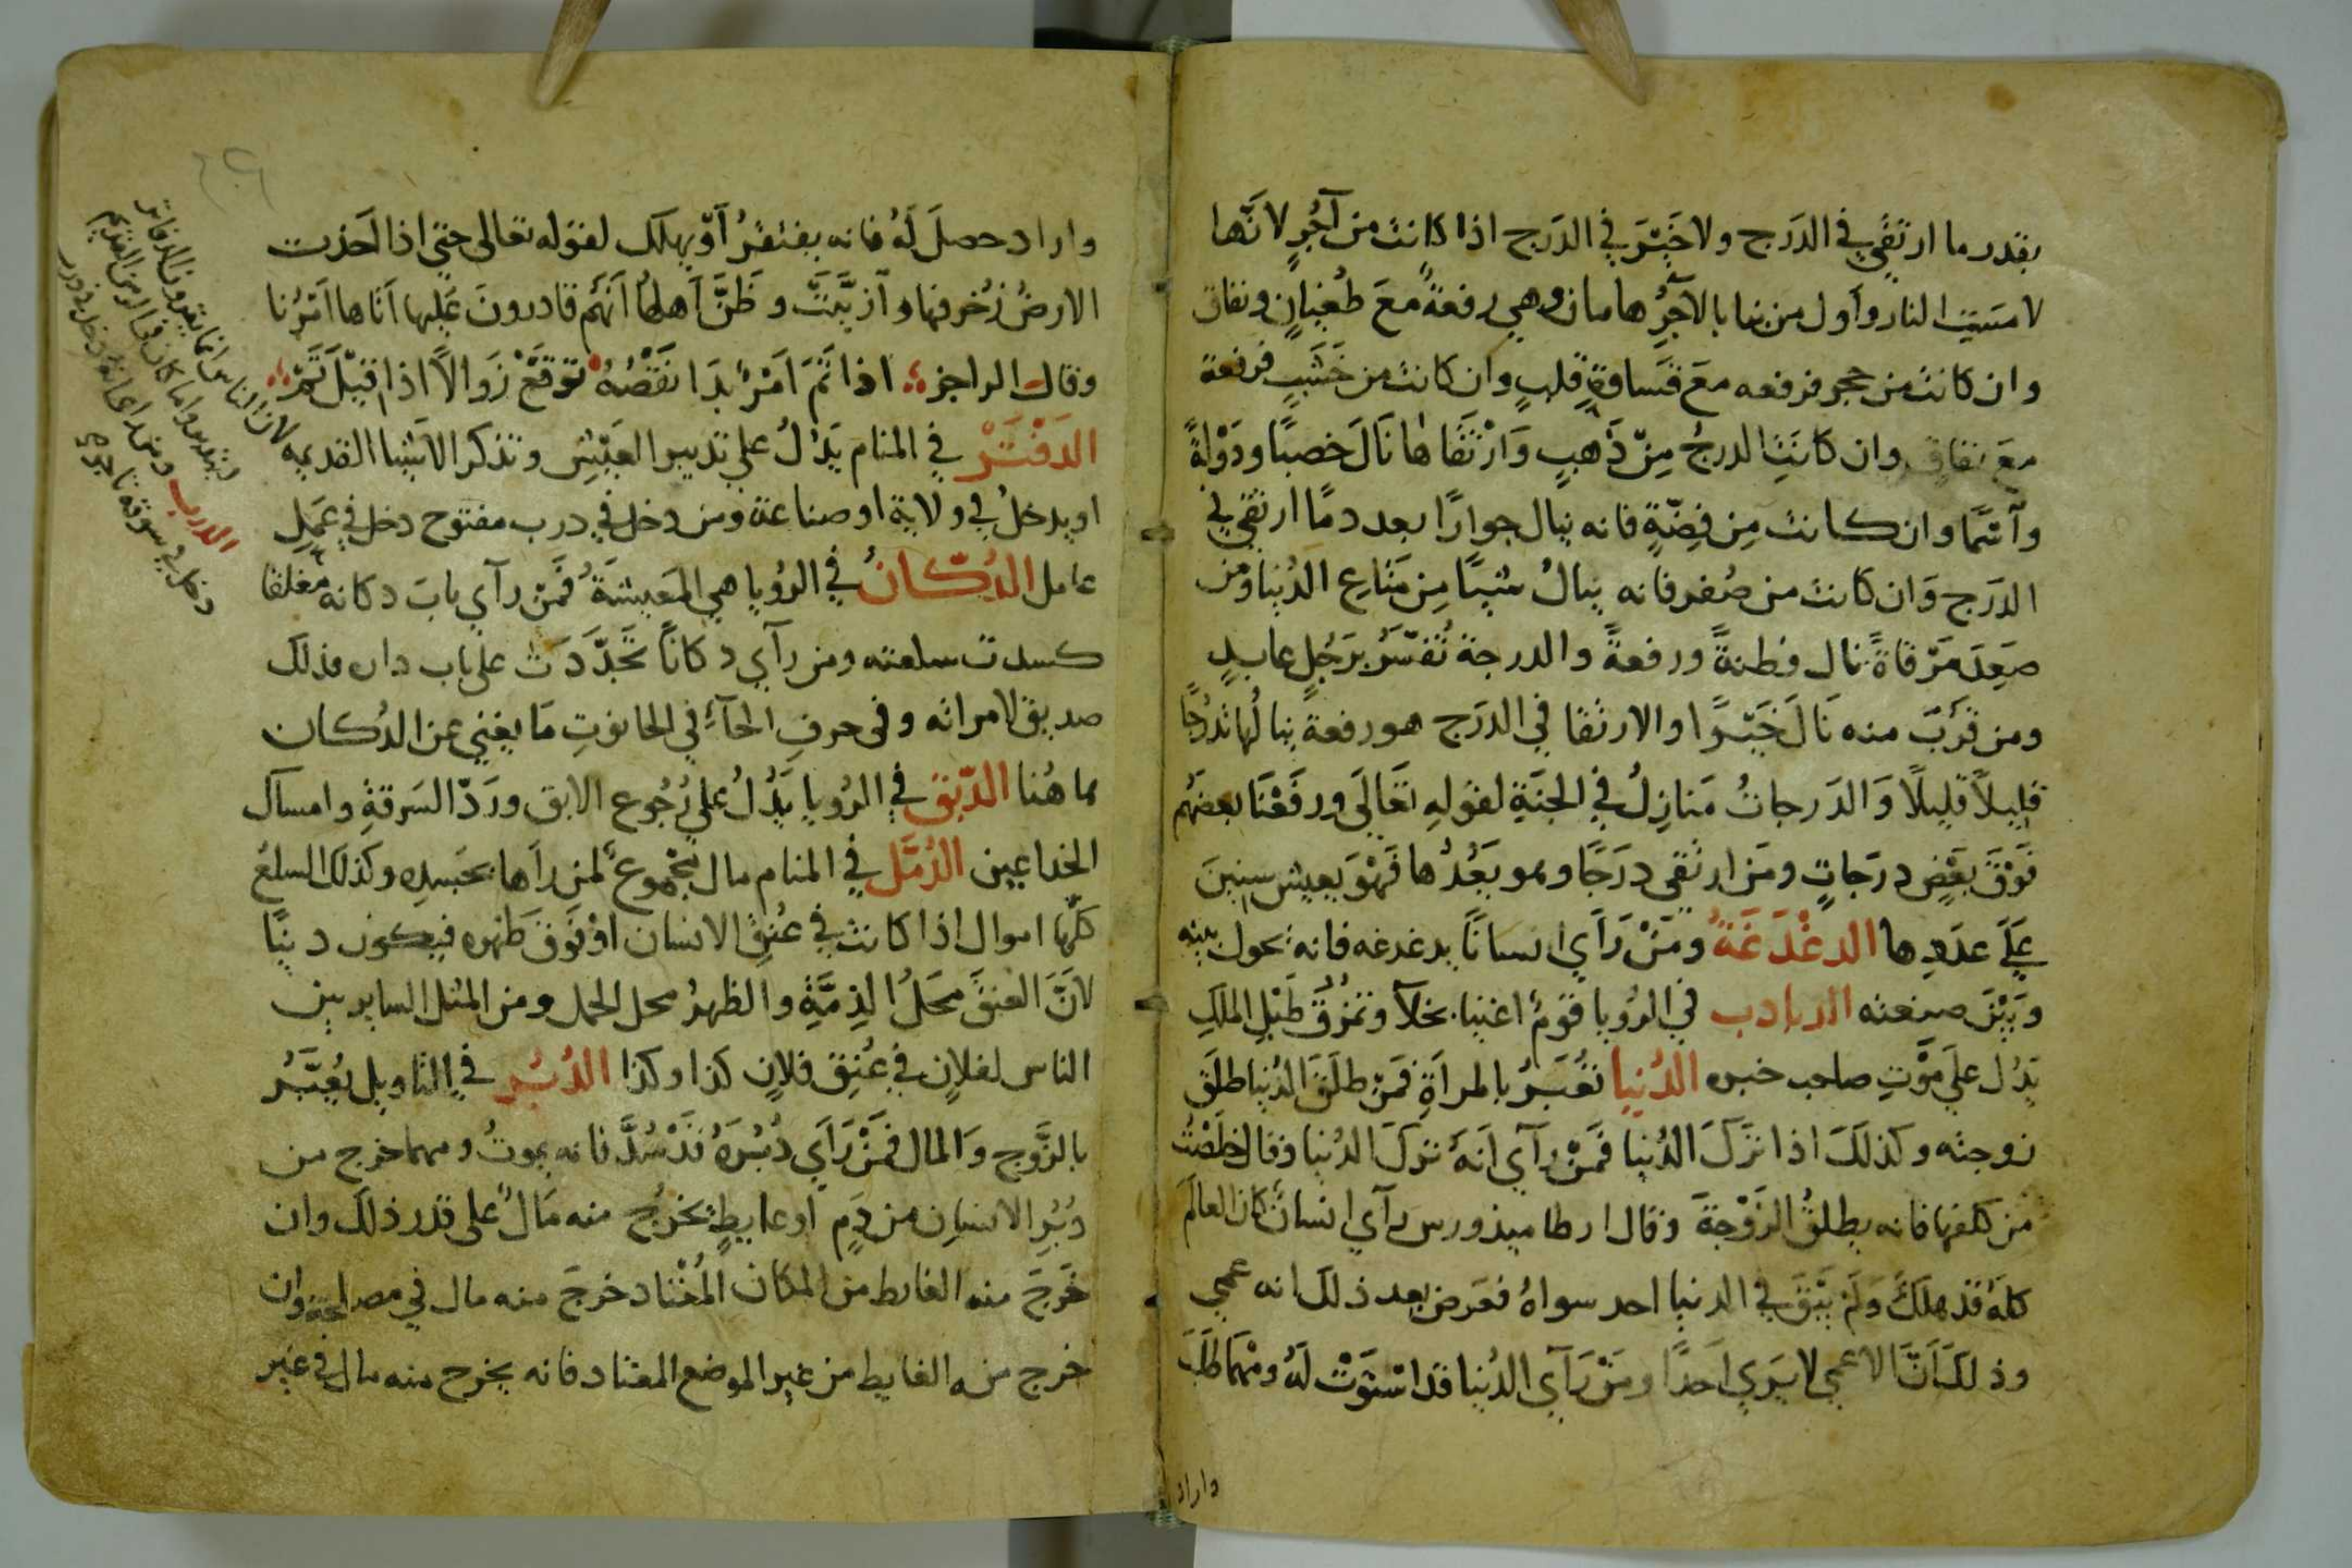 بقدر ما ارتقي في الدَرَج ولا خَيْرَ في الدَرَج اذا كانت من آجُرٍ لانَّها
لامسَتِ النار واَول من بنا بالآجُرِ هامان وهي رفعةٌ معَ طُغيانٍ ونفاق
وان كانت من حجر فرفعه معَ قَساوةِ قلبٍ وان كانت من خَشَبٍ فرفعة
معَ نفاقٍ وان كانَتِ الدرجُ مِنْ ذَهبٍ وَارْتَقَاها نَالَ خصبًا ودَوْلةً
وان كانت مِن فِضّةٍ فانه ينال جوارًا بعدد مَا ارتقي في
الدَرَج وَان كانت من صُفر فانه ينالُ شيئًا مِن مَتَاعِ الدُنيا ومن
صَعِدَ مَرْقاةً نال فطنةً ورفعةً والدرجة تُفسَّرُ برَجُلٍ عابدٍ
ومن قرَبَ منه نَالَ خَيْرًا والارتقا في الدَرَج هو رفعة ينالُها تدَرُّجًا
قليلاً قليلًا وَالدَرجاتُ مَنازِلُ في الجنَةِ لقولِهِ تَعَالَى ورفَعْنَا بعضَهُم
فَوْقَ بَعْضٍ درَجاتٍ ومَن ارتقي درَجًا وهو يَعُدُّها فَهْوَ يعيش سِنِينَ
عَلَي عدَدِها الدغْدَغَةُ ومَنْ رَآي انسانًا يدغدغه فانه يحول بينه
وَبَيْنَ صنعته الدبادب في الرُويا قومٌ اغنيا بخلآ وتمزُّق طَبْلِ الملَكِ
يَدُل علَي مَوْتِ صاحب خبره الدُنيا تُعَبَّرُ بالمرآةِ فمَنْ طلَقَ الدُنيا طلَقَ
زوجته وكذلكَ اذا تَرَكَ الدُنيا فمَنْ رآي انَهُ تركَ الدُنيا وقال خلَصْتُ
من كلفها فانه يطلقُ الزَوْجة وقال ارطاميدورس من رآي انسانٌ كانَ العالَم
كلَهُ قد هلَكَ وَلَمْ يَبْقَ في الدنيا احد سواهُ فعَرض بعد ذلك انه عمي
وذلكَ اَنَّ الاعمي لا يَرَي اَحَدًا ومَنْ رَآي الدُنيا قد استوَتْ لَهُ ومَهْمَا طلَبَ
واراد
واراد حصلَ لَهُ فانه يفتقرُ اَوْ يهلك لقوله تعالى حتي اذا اخذت
الارضُ زُخرفها وازيَّنَتْ وظَنَّ اَهلُها اَنَهُم قادرونَ عَلَيها اَتاها اَمْرُنا
وقال الراجز اذا تَمَّ اَمْرٌ بدَا نَقْصُهُ توقعْ زَوالاً اذا قِيلَ تَمّ
الدَفْتَرْ في المنام يَدُلُ علي تدبير العَيْشِ وتذكر الاشيا القديمه
لان الناس انما يقرون الدفاتر
ويتدبروا ما كان في الزمن القديم
الدرب
اويدخلُ في ولاية اوصناعة ومن دخل في درب مفتوح دخل في عمَلِ
عامل الدُكّانُ في الرُويا هي المَعيشَةُ فمَنْ رآي بابَ دكانه مغلقا
كسدت سلعته ومن رآي دكانًا تجَدّدَتْ علي باب داره فذلك
صديق لامراته وفى حرفِ الحآءِ في الحانوتِ مَا يغني عن الدُكان
ها هُنا الدّبق في الرُويا يَدُلُ علي رُجُوع الابق ورَدّ السَرقةِ وامساك
الخداعين الدُمَّل في المنام مال مجْمُوعٌ لمن رآها بحَسِدِه وكذلك السلعُ
كلّها اموال اذا كانت في عُنقِ الانسان اَوْ فوقَ ظهره فيكون دينًا
لانَّ العنقَ محَلُ الذِمَّةِ والظهرُ محل الحمل ومن المثل الساير بين
الناس لفلانٍ في عُنِق فلانٍ كذا وكذا الدُبُر في التاويل يُعَبَّرُ
بالزَّوج وَالمال فمَنْ رَآي دُبُرَهُ قَدْ سُدَّ فانه يموتُ ومهما خرج من
دُبُرِ الانسانِ من دَمٍ اوغايطٍ يخرُج منه مَالٌ علي قدر ذلك وان
خَرجَ منه الغايط من المكان المُعْتاد خرجَ منه مال في مصلحة وان
خرج منه الغايط من غير الموضع المعتاد فانه يخرج منه مال في غير